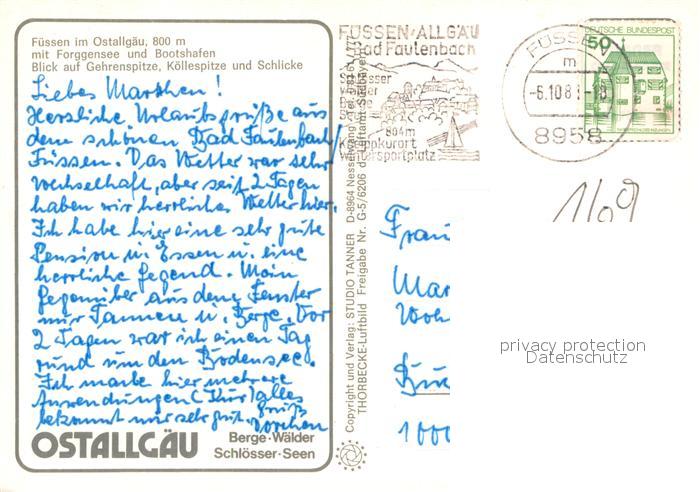 Füssen im Ostallgäu, 800 m
mit Forggensee und Bootshafen
Blick auf Gehrenspitze, Köllespitze und Schlicke
Liebes Mar!
Herzliche Urlaubsgrüße aus
dem schönen Bad Faulenbach/
Füssen. Das Wetter war sehr
wechselhaft, aber seit 2 Tagen
haben wir herrliches Wetter hier.
Ich habe hier eine sehr gute
Pension u. Essen u. eine
herrliche Gegend. Mein
Gegenüber aus dem Fenster
nur Tannen u. Berge. Vor
2 Tagen war ich einen Tag
rund um den Bodensee.
Ich mache hier mehrere
Anwendungen (Kur) alles
bekommt mir sehr gut. Gruß
OSTALLGÄU
Berge·Wälder
Schlösser·Seen
Copyright und Verlag: STUDIO TANNER D-8964 Nesselwang
THORBECKE-Luftbild Freigabe Nr. G-5/6206
FÜSSEN-ALLGÄU
Bad Faulenbach
Schlösser
Wälder
Berge
804m
Kneippkurort
Wintersportplatz
FÜSSEN
m
-6.10.8 -18
8958
DEUTSCHE BUNDESPOST
50
1/09
Frau
Mar
Bu
1000
privacy protection
Datenschutz